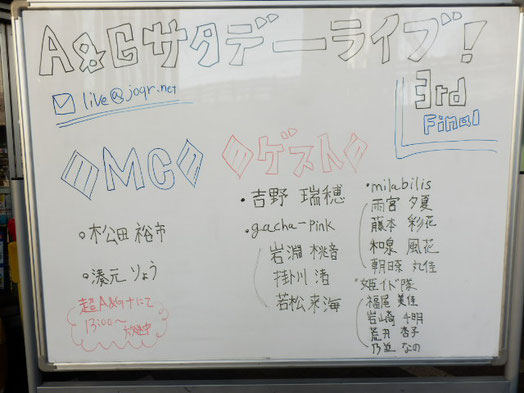 A&Gサタデーライブ!
3rd
Final
live@joqr.net
MC
松田 裕市
湊元 りょう
超A&G+にて
13:00〜
放送中
ゲスト
・吉野 瑞穂
・gacha-pink
岩淵 桃音
掛川 渚
若松 来海
・milabilis
雨宮 夕夏
藤本 彩花
和泉 風花
朝日奈 丸佳
・姫イド隊
福尾 美佳
岩崎 千明
荒井 杏子
乃並 なの